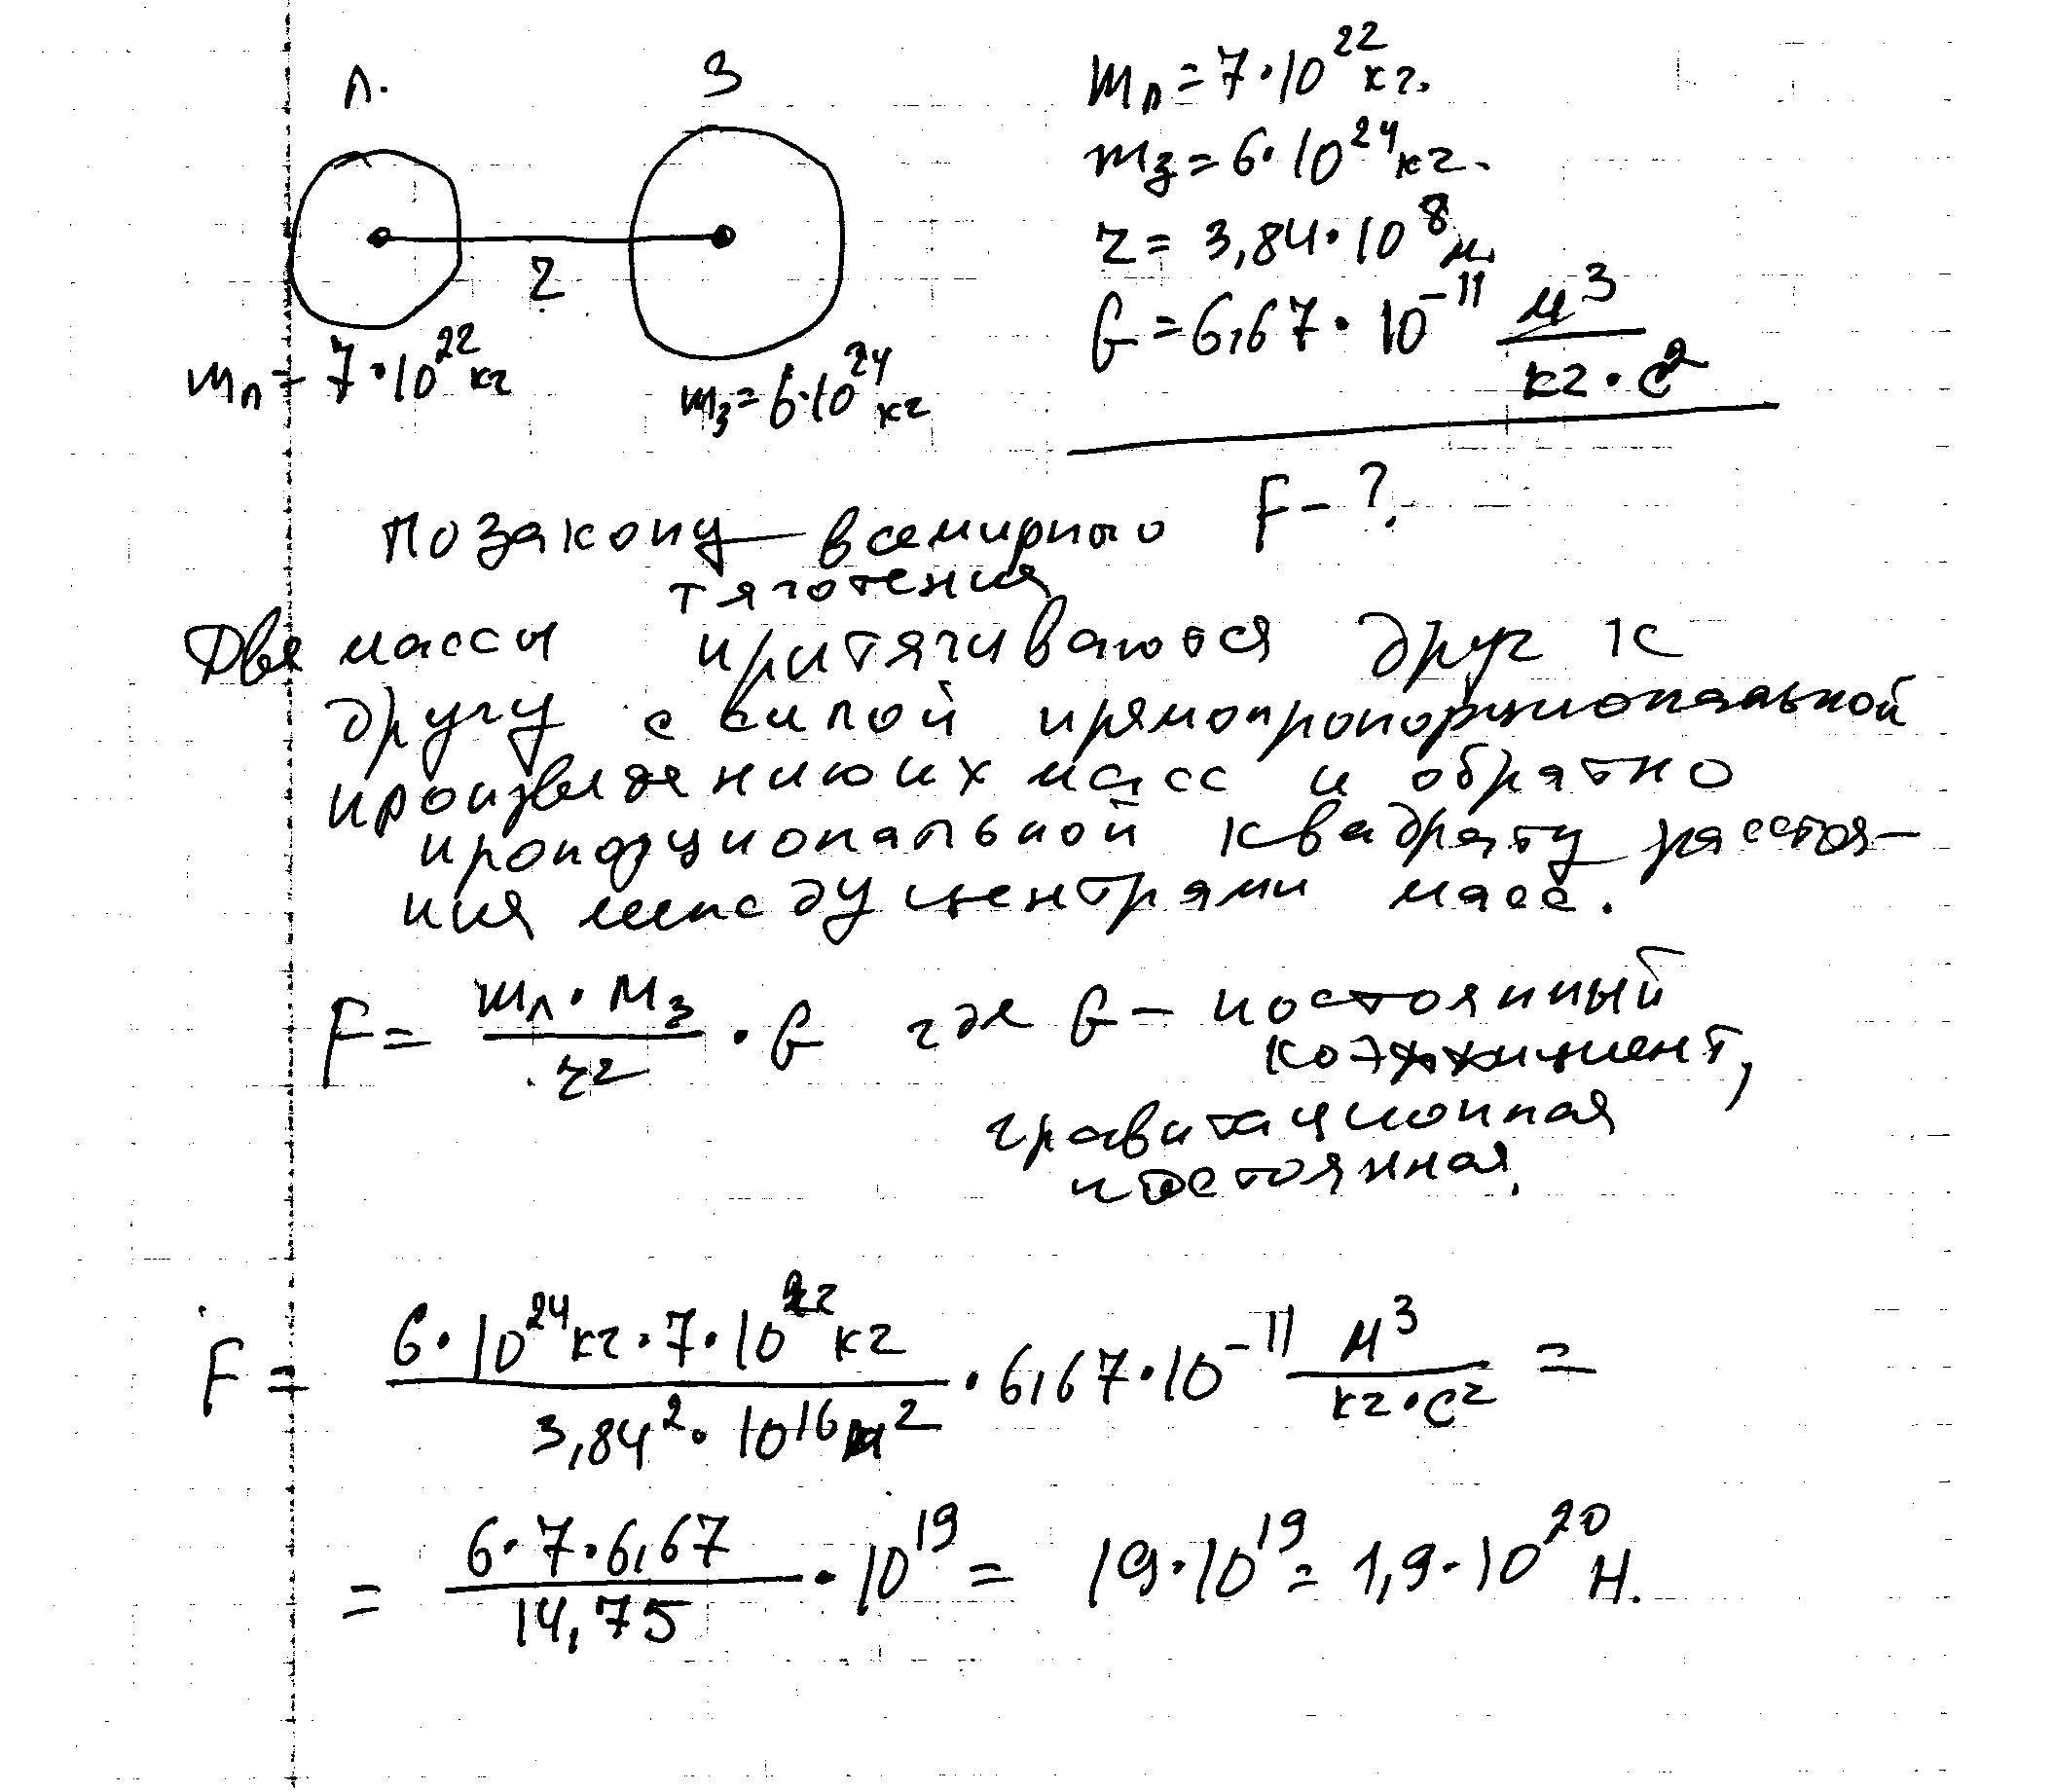 Л. З
mл = 7·10²² кг
r
mз = 6·10²⁴ кг
mл = 7·10²² кг.
mз = 6·10²⁴ кг.
r = 3,84·10⁸ м
G = 6,67·10⁻¹¹ м³/(кг·с²)
F - ?
По закону всемирного
тяготения
Две массы притягиваются друг к
другу с силой прямопропорциональной
произведению их масс и обратно
пропорциональной квадрату расстоя-
ния между центрами масс.
F = (mл·Mз)/r² · G где G - постоянный
коэффициент,
гравитационная
постоянная.
F = (6·10²⁴ кг·7·10²² кг)/(3,84²·10¹⁶ м²) · 6,67·10⁻¹¹ м³/(кг·с²) =
= (6·7·6,67)/14,75 · 10¹⁹ = 19·10¹⁹ = 1,9·10²⁰ Н.